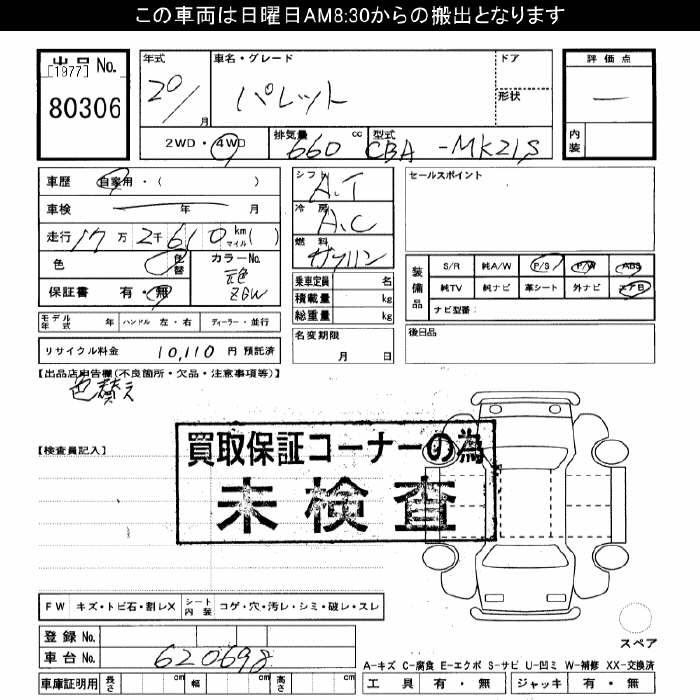 この車両は日曜日AM8:30からの搬出となります
出品No.
[1977]
80306
年式
20/
月
車名・グレード
パレット
ドア
形状
評価点
—
内装
2WD・4WD
排気量
660 cc
型式
CBA-MK21S
車歴 自家用・( )
車検 年 月
走行 17万2千610 km マイル( )
色 色替
カラーNo.
元色
ZGW
保証書 有・無
シフト
A.T
冷房
A.C
燃料
ガソリン
乗車定員 名
積載量 kg
総重量 kg
セールスポイント
装備品
S/R 純A/W P/S P/W ABS
純TV 純ナビ 革シート 外ナビ エアB
ナビ型番:
モデル年式 年 ハンドル 左・右 ディーラー・並行
名変期限
月 日
後日品
リサイクル料金 10,110 円 預託済
【出品店申告欄(不良箇所・欠品・注意事項等)】
色替え
買取保証コーナーの為
未検査
【検査員記入】
FW キズ・トビ石・割レX シート内装 コゲ・穴・汚レ・シミ・破レ・スレ
スペア
登録No.
車台No. 620698
A-キズ C-腐食 E-エクボ S-サビ U-凹ミ W-補修 XX-交換済
車庫証明用 長さ cm 幅 cm 高さ cm
工具 有・無 ジャッキ 有・無